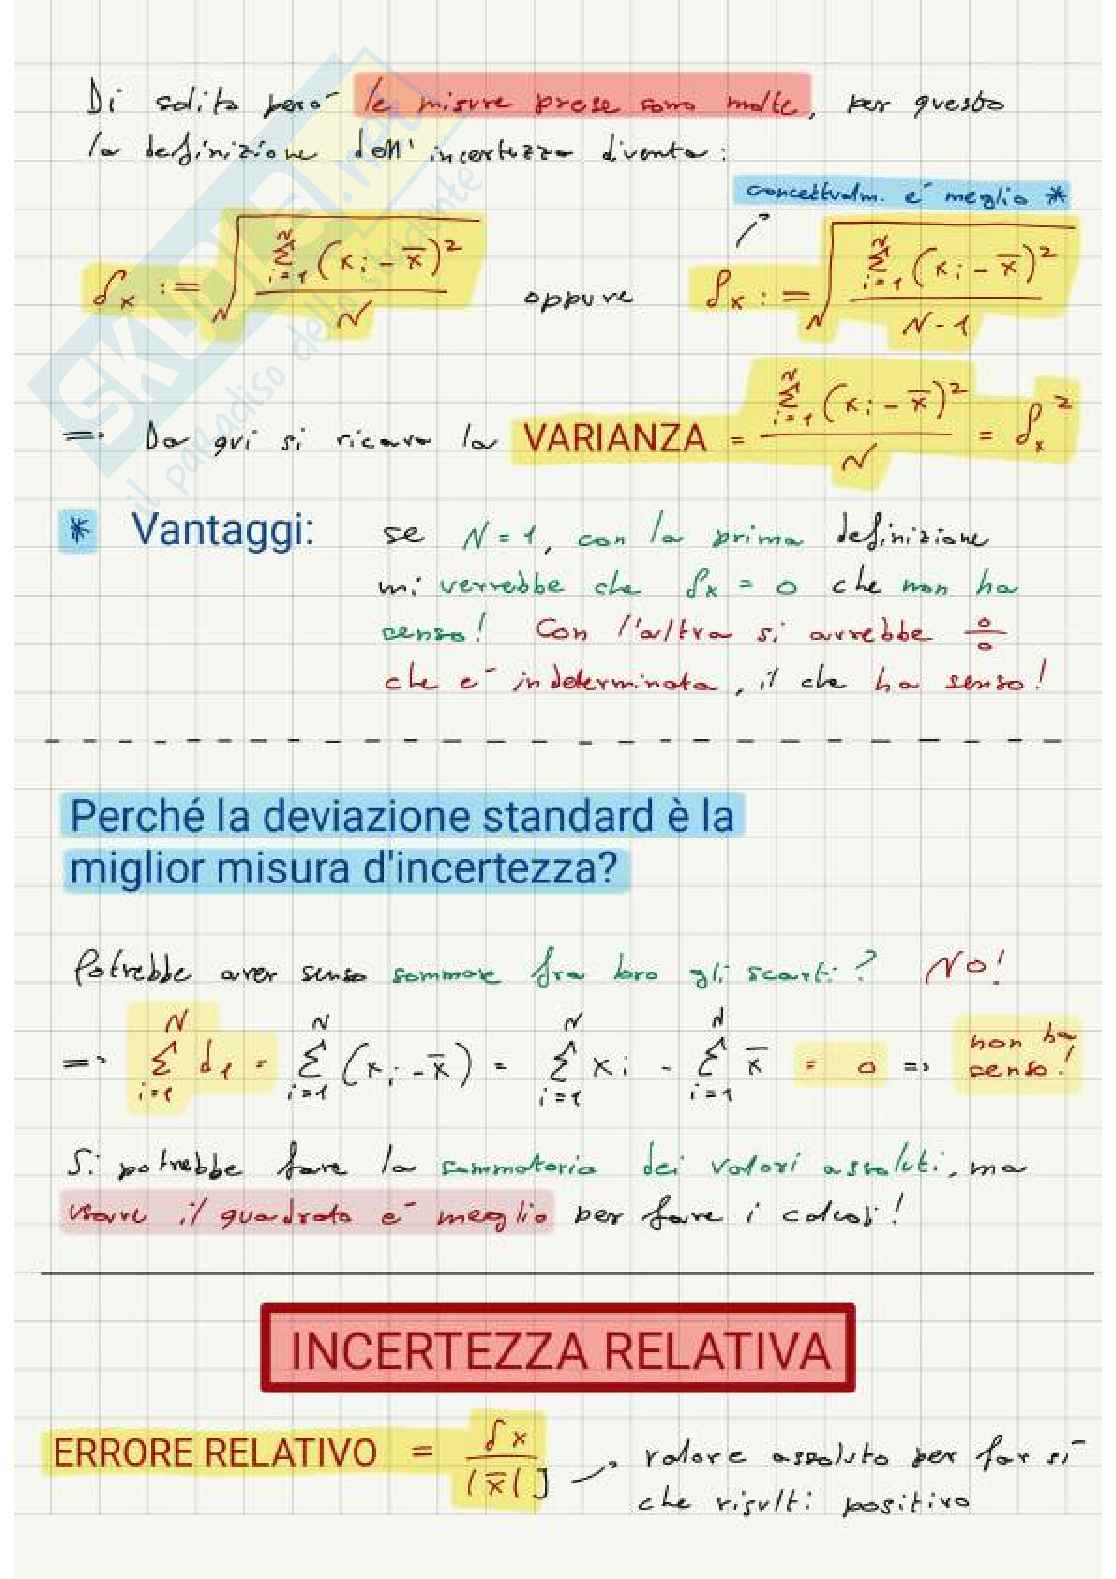 Di solito però le misure prese sono molte, per questo
la definizione dell'incertezza diventa:
concettualm. è meglio *
δx := √( Σ_{i=1}^{N} (xi - x̄)² / N ) oppure δx := √( Σ_{i=1}^{N} (xi - x̄)² / N-1 )
=> Da qui si ricava la VARIANZA = Σ_{i=1}^{N} (xi - x̄)² / N = δx²
* Vantaggi: se N=1, con la prima definizione
mi verrebbe che δx = 0 che non ha
senso! Con l'altra si avrebbe 0/0
che è indeterminata, il che ha senso!
Perché la deviazione standard è la
miglior misura d'incertezza?
Potrebbe aver senso sommare fra loro gli scarti? NO!
=> Σ_{i=1}^{N} d1 = Σ_{i=1}^{N} (xi - x̄) = Σ_{i=1}^{N} xi - Σ_{i=1}^{N} x̄ = 0 => non ha senso!
Si potrebbe fare la sommatoria dei valori assoluti, ma
usare il quadrato è meglio per fare i calcoli!
INCERTEZZA RELATIVA
ERRORE RELATIVO = δx / |x̄| ] → valore assoluto per far sì
che risulti positivo
SKUOLA.net
il paradiso dello studente